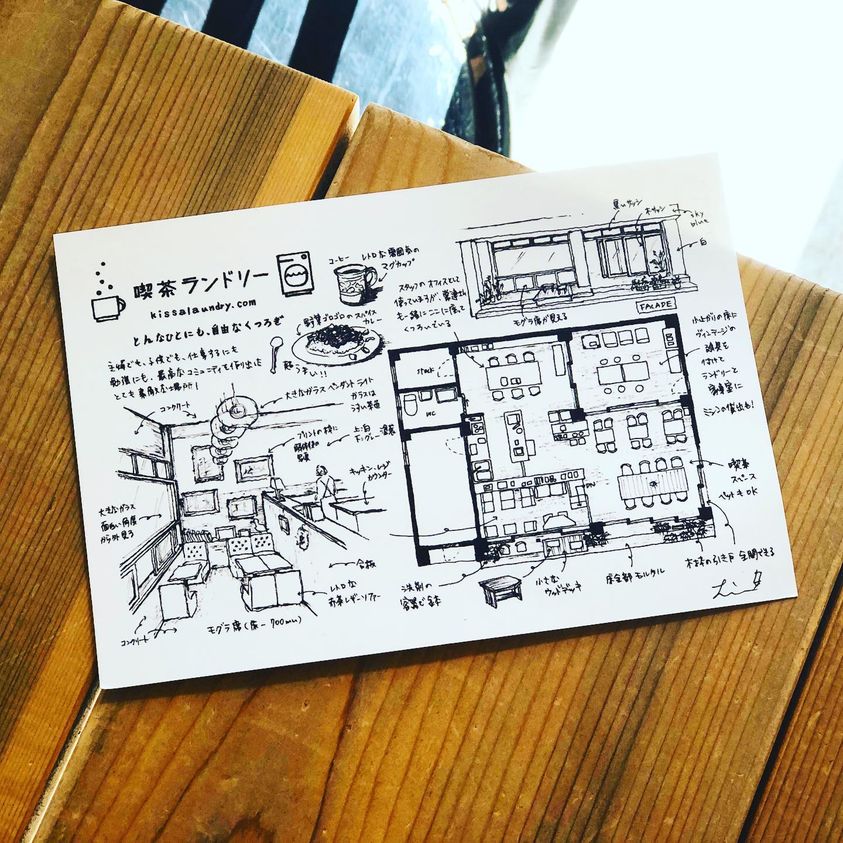 喫茶ランドリー
kissalaundry.com
どんなひとにも、自由なくつろぎ
主婦でも、子供でも、仕事するにも
勉強にも、最高なコミュニティで作り出した
とても素敵な場所!
コーヒー
レトロな雰囲気の
マグカップ
野菜ゴロゴロのスパイス
カレー
超うまい!!
スタッフのオフィスとして
も一緒にここに座って
くつろいでいる
黒いサッシ
木サッシ
sky
blue
白
モグラ席が見える
FACADE
小上がりの床に
ヴィンテージの
建具を
付けて
ランドリーと
家事室に
ミシンの貸出も!
STOCK
WC
コンクリート
大きなガラスペンダントライト
ガラスは
うすい茶色
プリントの様に
上:白
下:グレー塗装
キッチン・レジ
カウンター
大きなガラス
面白い角度
から外見る
合板
レトロな
お茶レザーソファー
コンクリート
モグラ席(床-700mm)
喫茶
スペース
ペットもOK
洗剤の
容器で含む
小さな
ウッドデッキ
床全部モルタル
木を床の引き戸 全開できる